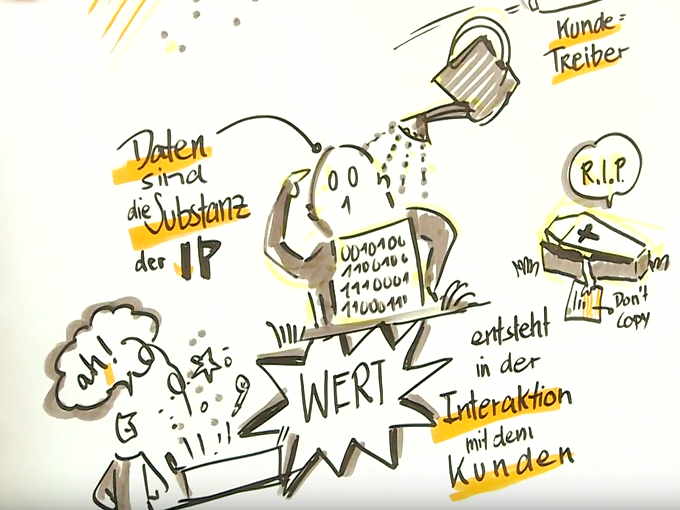 Kunde=
Treiber
Daten
sind
die Substanz
der IP
R.I.P.
0010100
1100106
1110001
1100011
Don't
copy
ah!
WERT
entsteht
in der
Interaktion
mit dem
Kunden